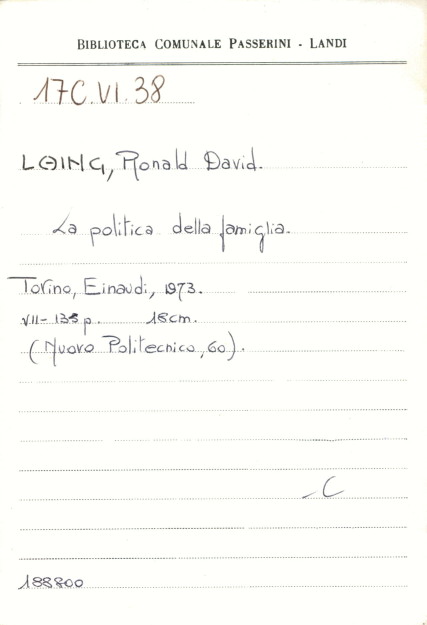 BIBLIOTECA COMUNALE PASSERINI - LANDI
17C.VI.38
LAING, Ronald David.
La politica della famiglia.
Torino, Einaudi, 1973.
VII- 138 p. 18cm.
(Nuovo Politecnico, 60).
C
188800